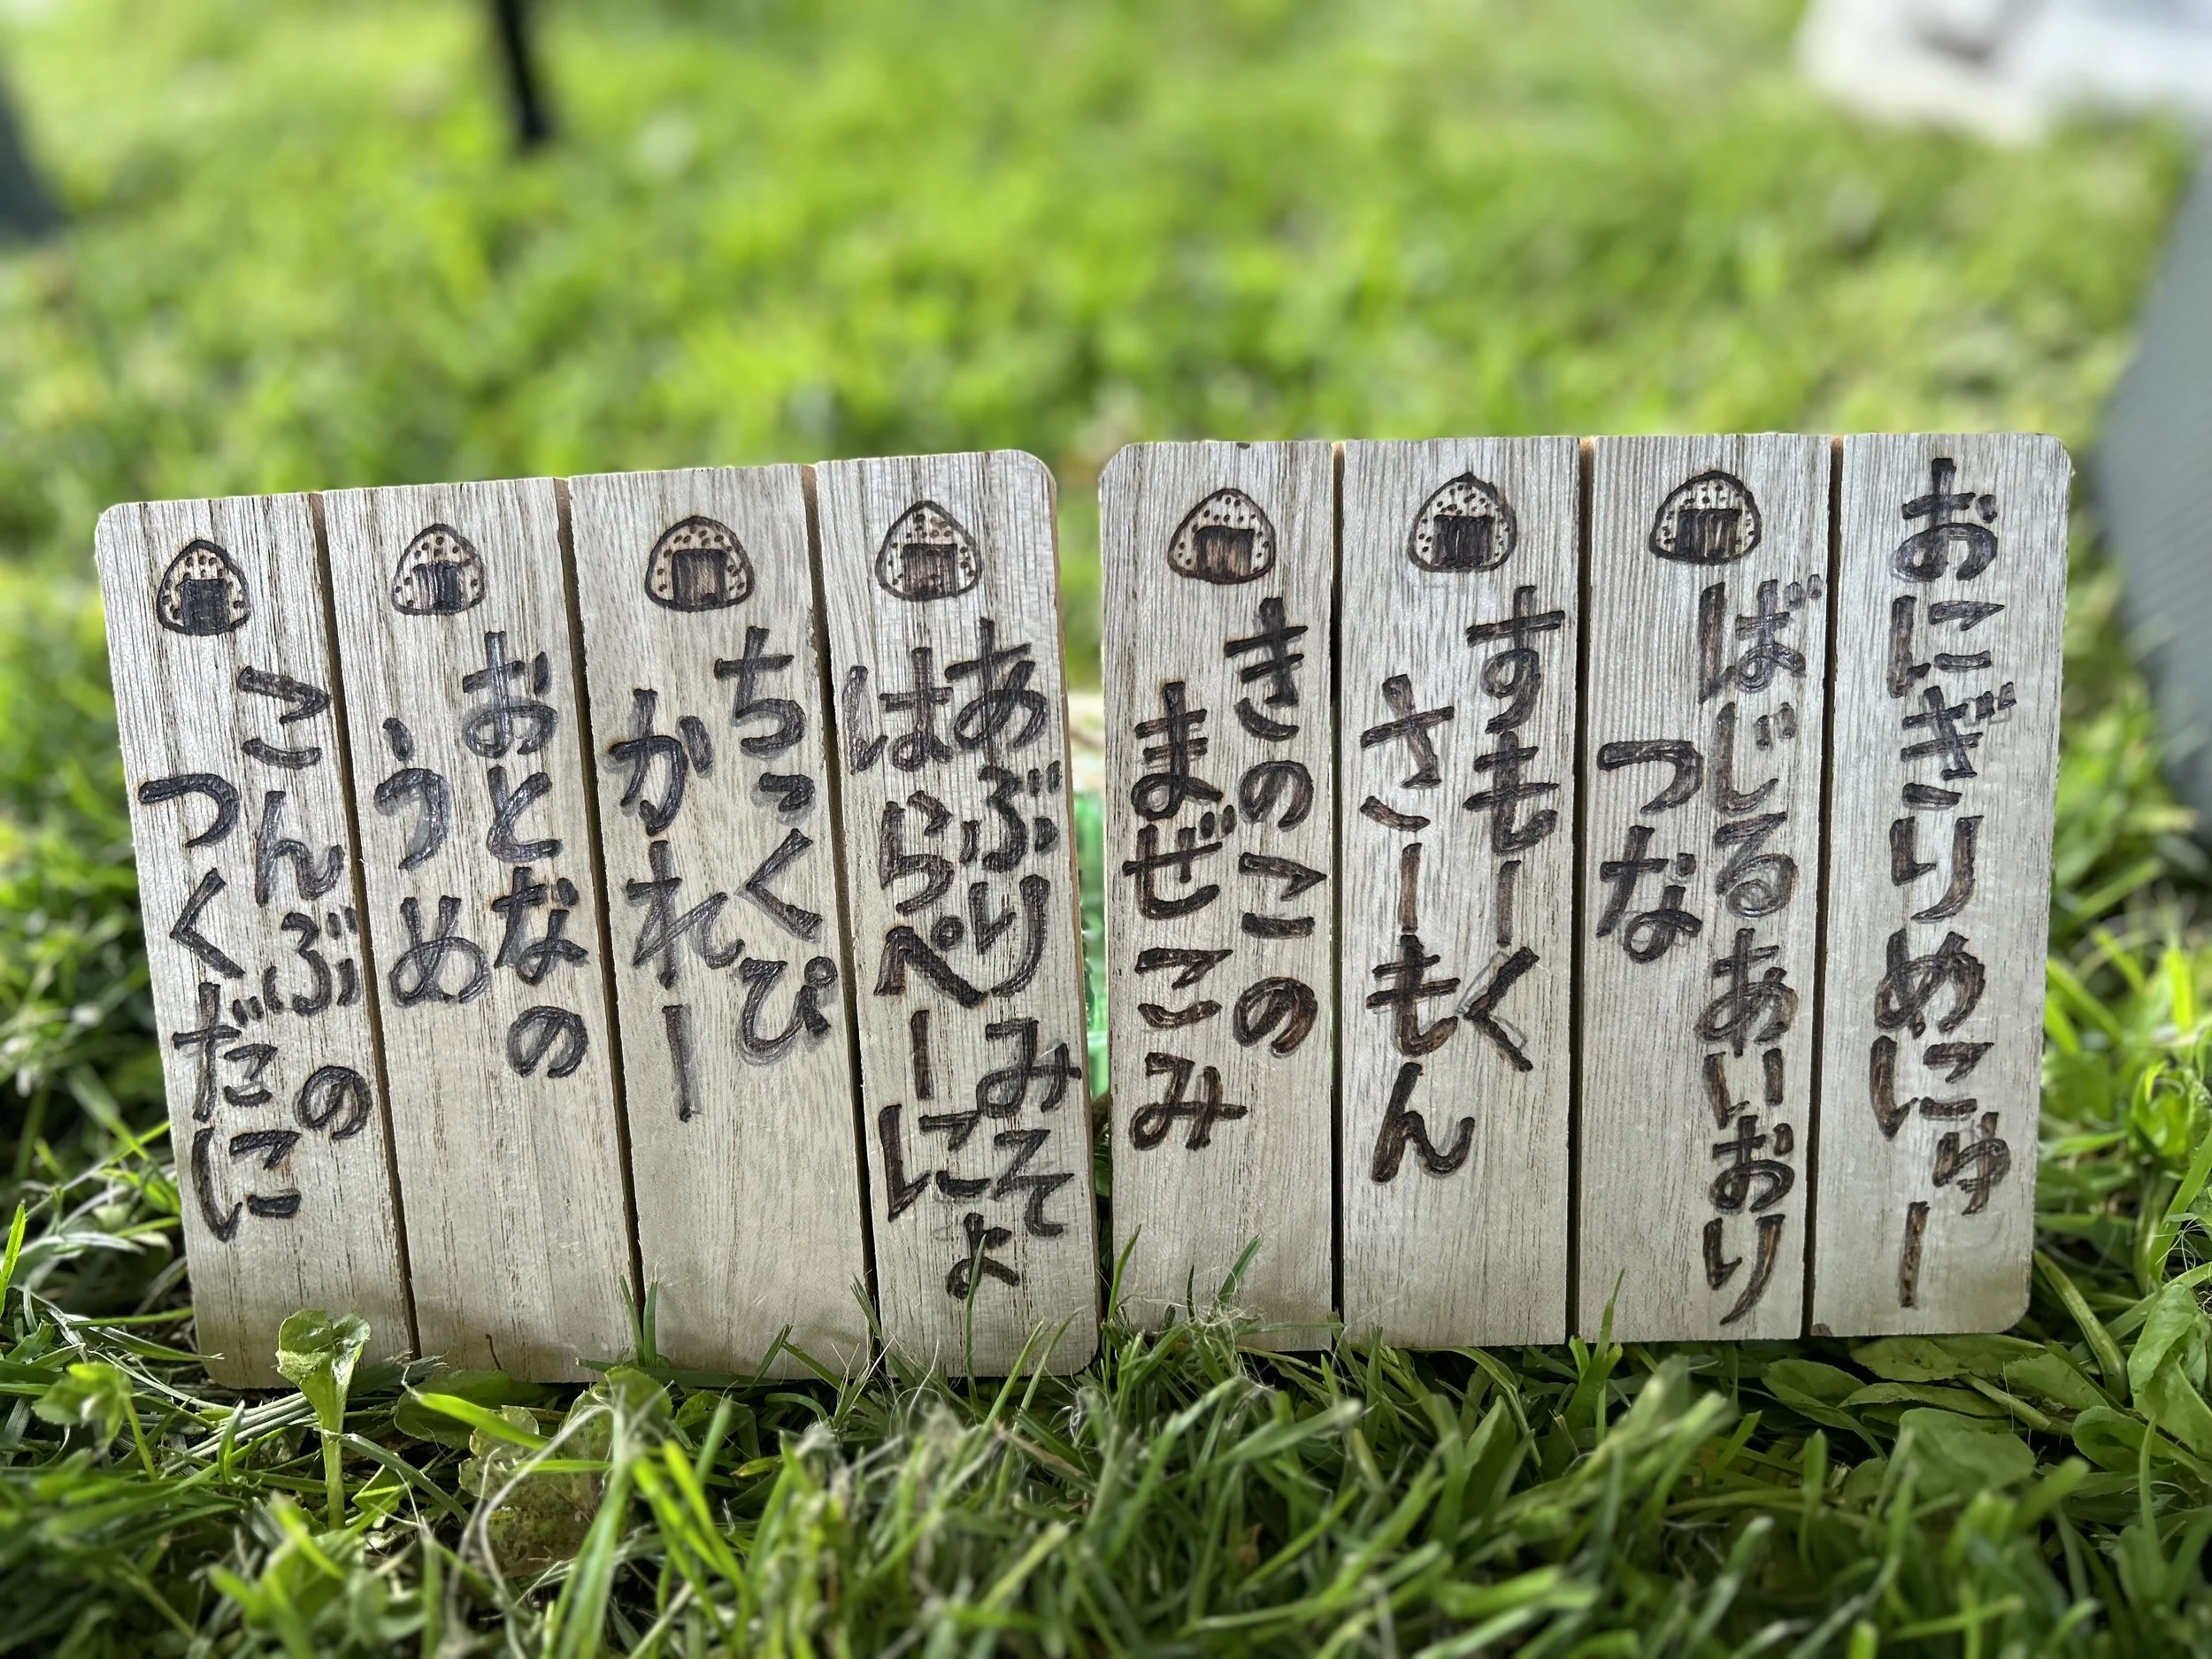 おにぎりめにゅー
ばじるあいおり
つな
すもーく
さーもん
きのこの
まぜこみ
あぶりみそ
はらぺーにょ
ちっくぴ
かれー
おとなの
うめ
こんぶの
つくだに